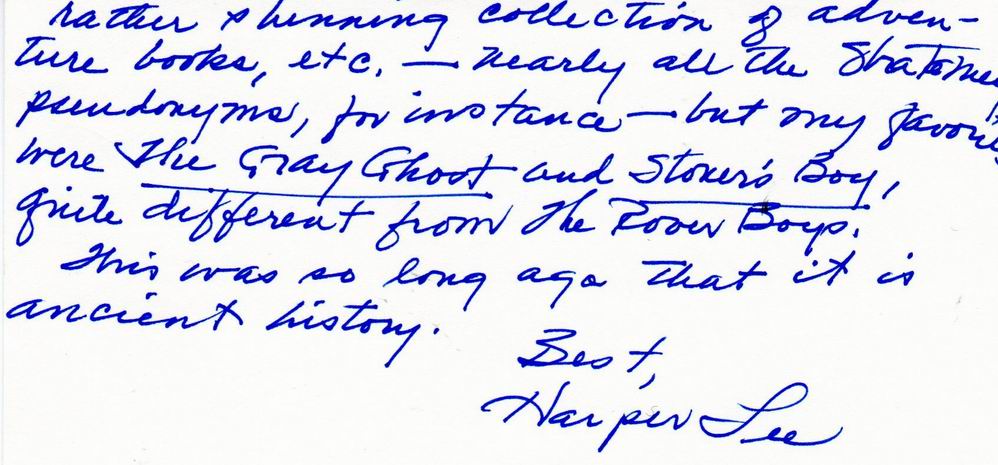 rather stunning collection of adven-
ture books, etc. — nearly all the Stratemey
pseudonyms, for instance — but my favori
were The Gray Ghost and Stoner's Boy,
quite different from The Rover Boys.
This was so long ago that it is
ancient history.
Best,
Harper Lee